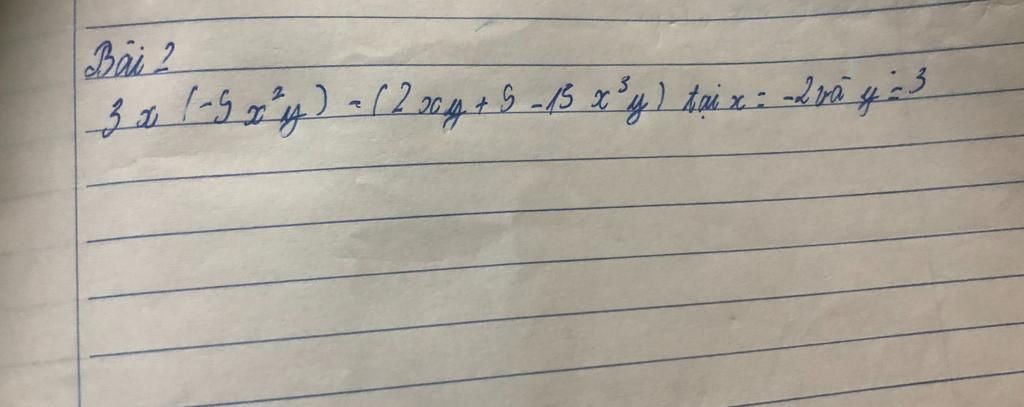 Bài 2
3x (-5x²y) - (2xy + 5 - 15x³y) tại x = -2 và y = 3